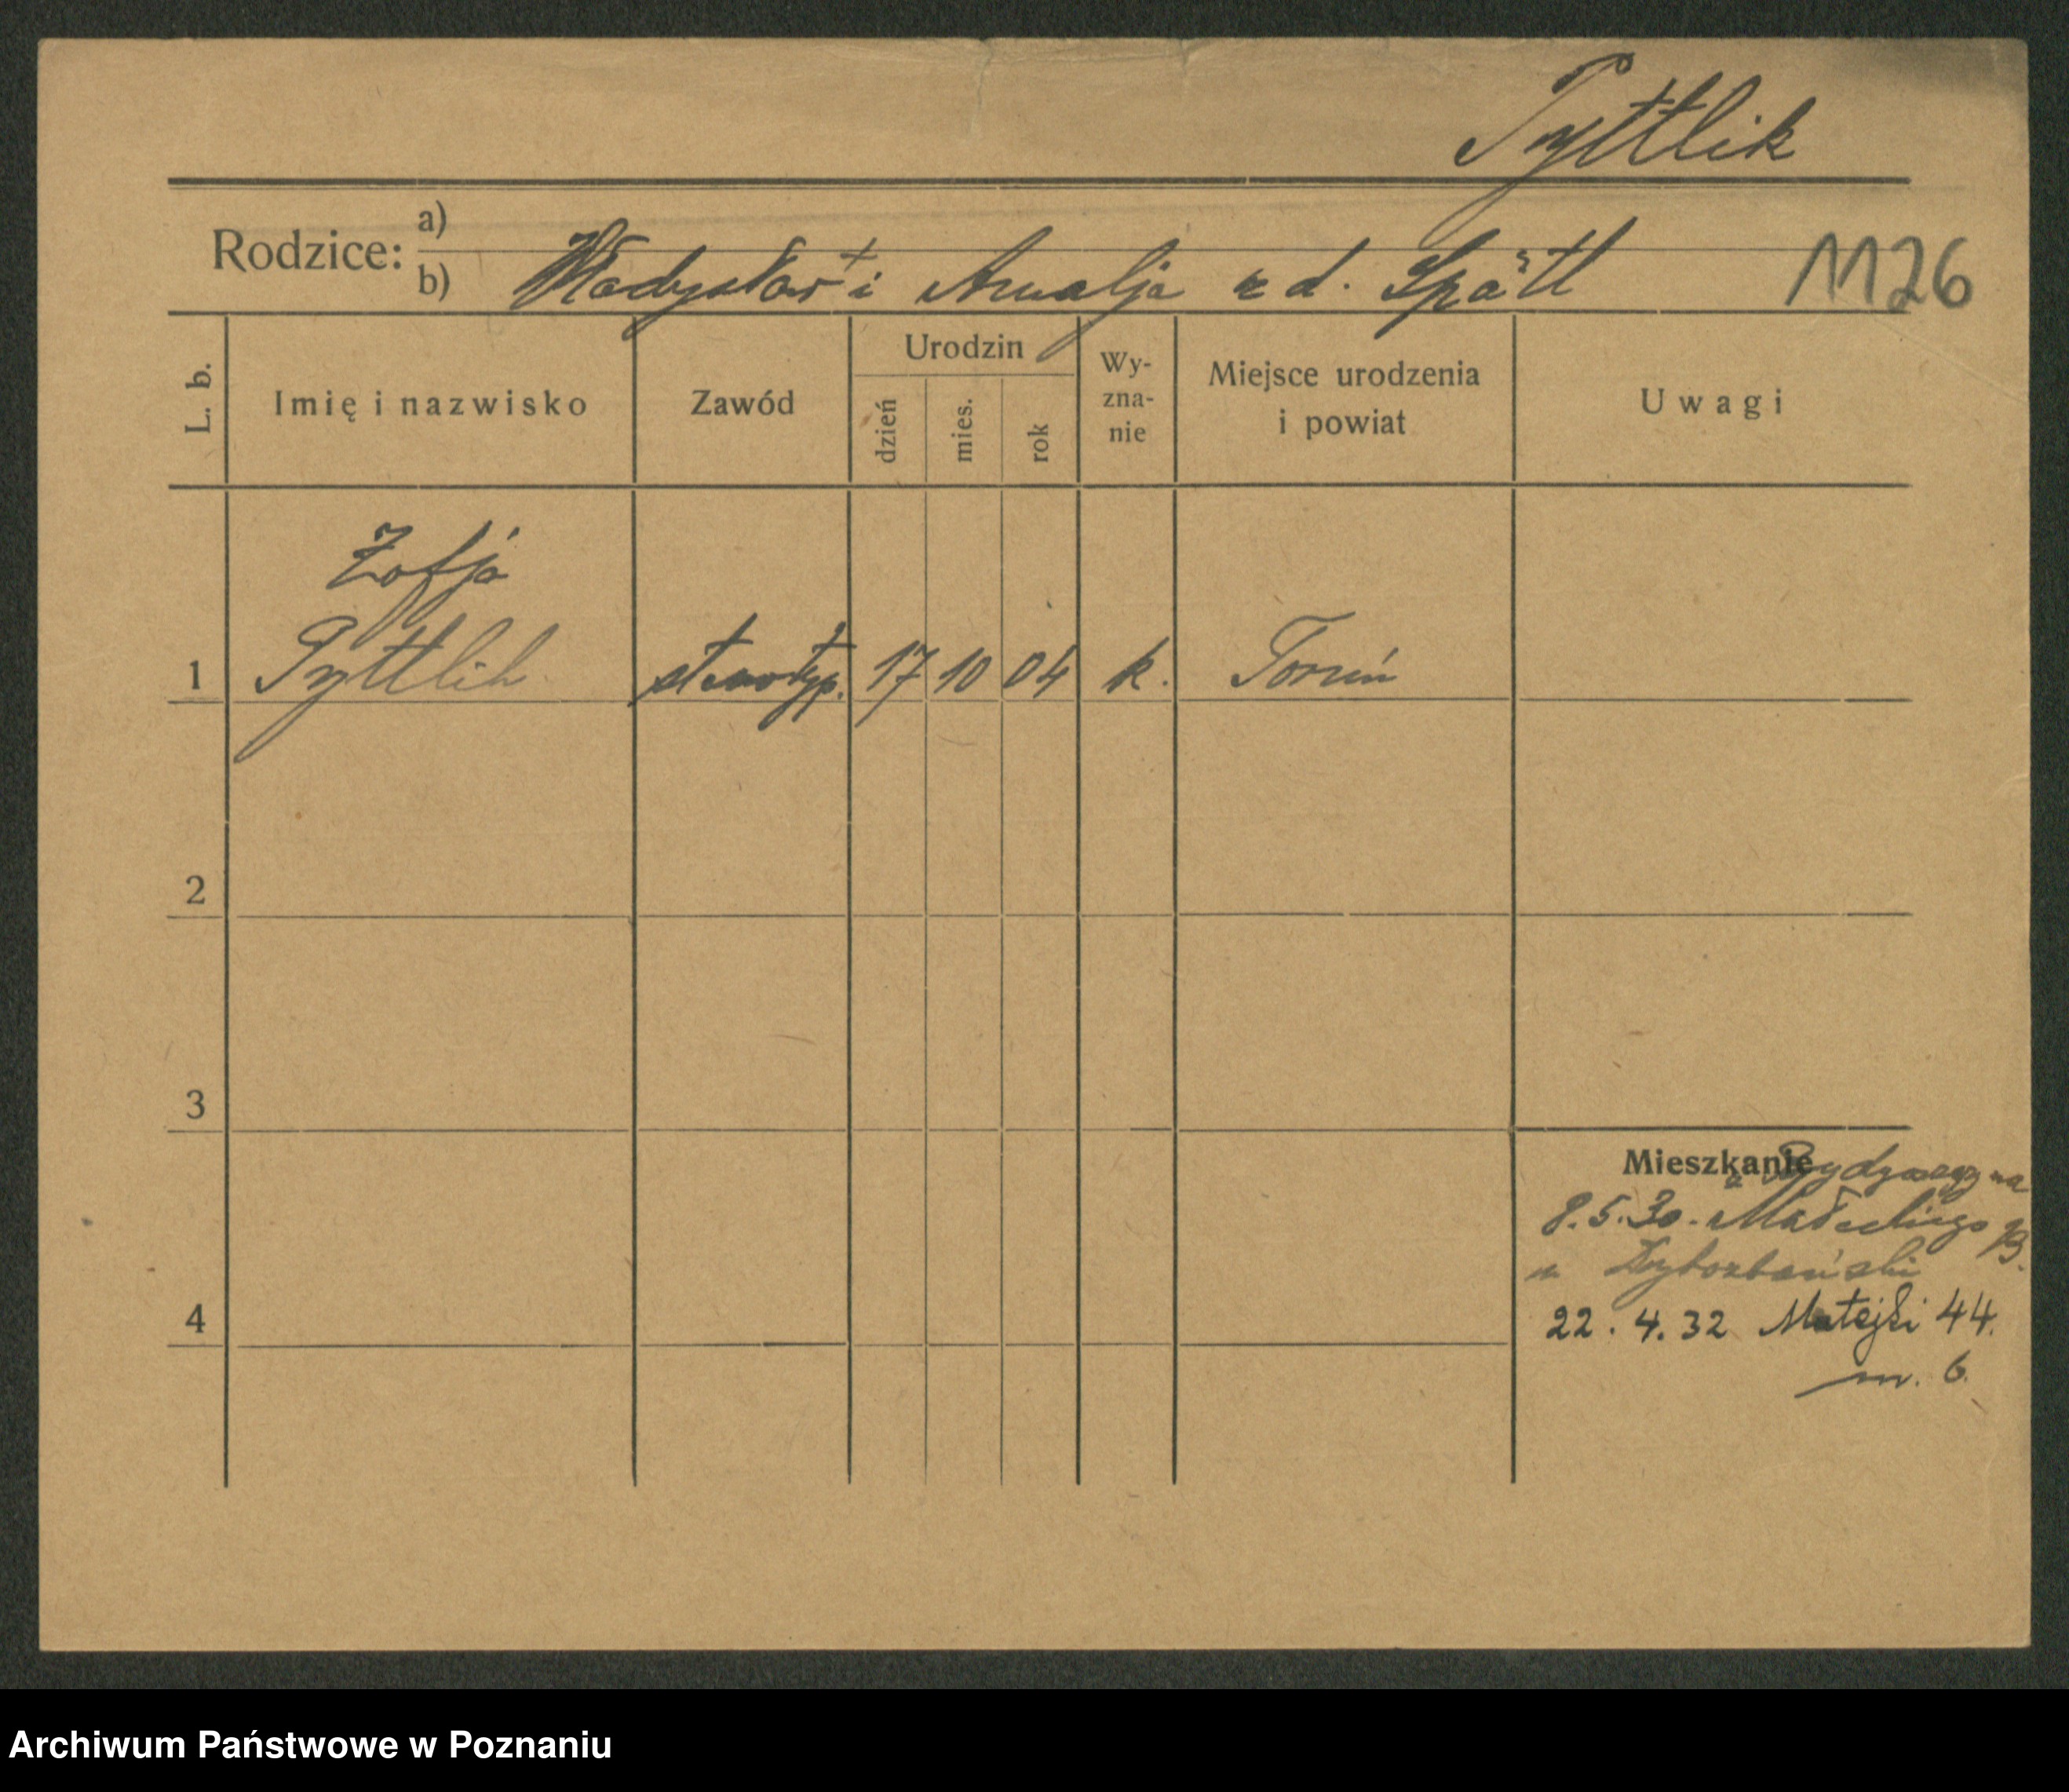 Pyttlik
Rodzice: a)
b) Władysław + i Amalja z d. Spätl
1126
L. b.
Imię i nazwisko
Zawód
Urodzin
dzień
mies.
rok
Wy-
zna-
nie
Miejsce urodzenia
i powiat
Uwagi
Zofja
1 Pyttlik stenotyp. 17 10 04 k. Toruń
2
3
4
Mieszkanie
z Bydgoszczy na
8.5.30. Małeckiego
u
22. 4. 32 Matejki 44.
m. 6.
Archiwum Państwowe w Poznaniu